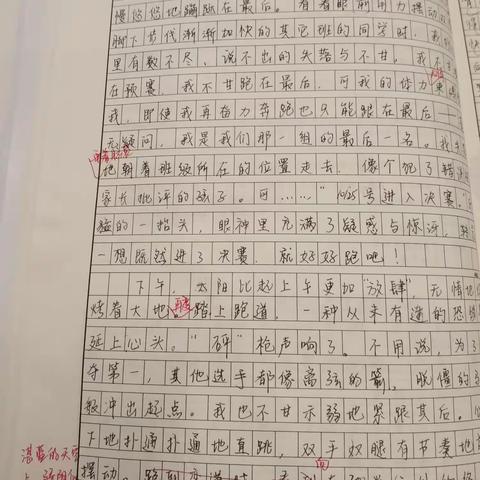 慢悠悠地蹦跶在最后。看着眼前用力摆动双
脚下步伐渐渐加快的其它班的同学时，我
里有数不尽、说不出的失落与不甘。我不
在预赛，我不甘跑在最后，可我的体力
我，即使我再奋力奔跑也只能跟在最后
无疑问，我是我们那一组的最后一名。我
地朝着班级所在的位置走去，像个犯了错
家长批评的孩子。可……"1025号进入决赛。
猛的一抬头，眼神里充满了疑惑与惊讶，转
一想既然进了决赛，就好好跑吧！
下午，太阳比起上午更加"放肆"，无情地
烤着大地。再度踏上跑道，一种从未有过的恐
延上心头。"砰"枪声响了。不用说，为了
夺第一，其他选手都像离弦的箭，脱僵的
般冲出起点。我也不甘示弱地紧跟其后。心
下地扑通扑通地直跳，双手双腿有节奏地
湛蓝的天空
摆动。跑到弯道时